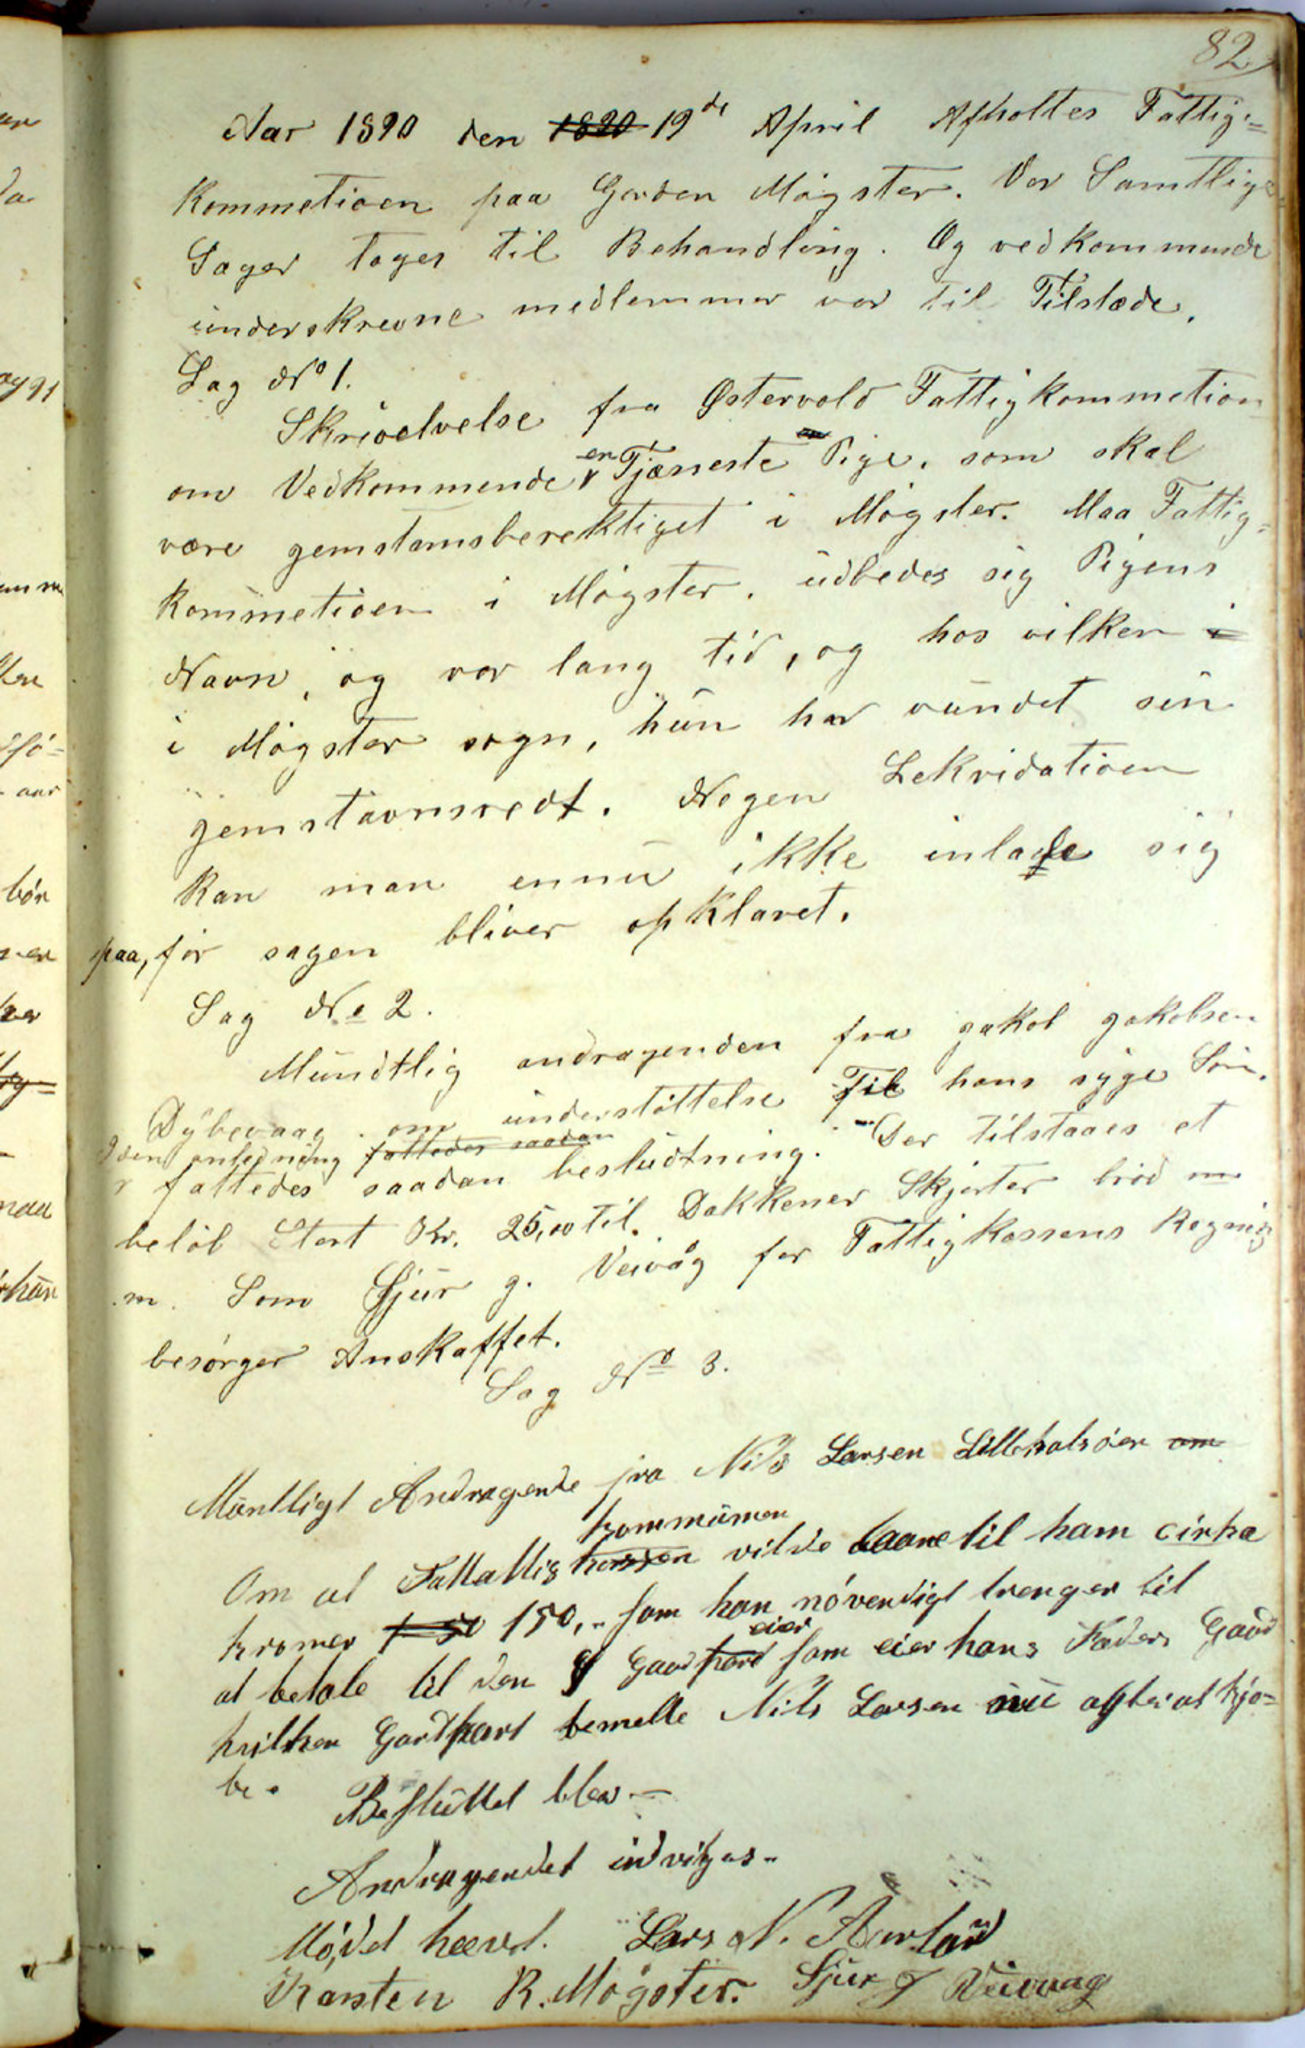 82
Aar 1890 den 1890 19de April Afholtes Fattig=
kommetioen paa Gorden Møgster. Vor Samtlige
Sager toges til Behandling. Og vedkommende
underskrevne medlemmer var til Tilstæde.
Sag No 1.
Skrivelvelse fra Østervold Fattigkommetion
om Vedkommende en Tjæneste Pige, som skal
være gemstamsberektiget i Møgster. Maa Fattig=
kommetioen i Møgster. udbedes sig Pigens
Navn, og vor lang tid, og hos vilken i
i Møgster sogn, hun har vundet sin
gemstavnsredt. Nogen Lekvidatioen
kan man ennu ikke inlade sig
paa, før sagen bliver opklaret.
Sag No 2.
Mundtlig andragenden fra jakob jakobsen
Dybevaag om understøttelse Til hans syge Søn.
I den anledning fattedes saadan
fattedes saadan besludtning. Der tilstaaes et
beløb Stort Kr. 25,00 til. Dakkener Skjorter brød m
m. Som Sjur g. Veivåg for Fattigkassens Regnig
besørger Anskaffet.
Sag No 3.
Muntligt Andragende fra Nils Larsen Lillekalsøen om
kommunen
Om at Fattattig kassen vilde laane til ham cirka
kroner 150 150,- som han nøvendigt trenger til
eier
at betale til den Gaard som eier hans Faders Gaard
hvilken Gardpart bemelte Nils Larsen nu agter at kjø=
be.
Besluttet blev —
Andragendet indvilges..
Mødet hævet. Lars N. Aurland
Karsten R. Møgster. Sjur J Veivaag